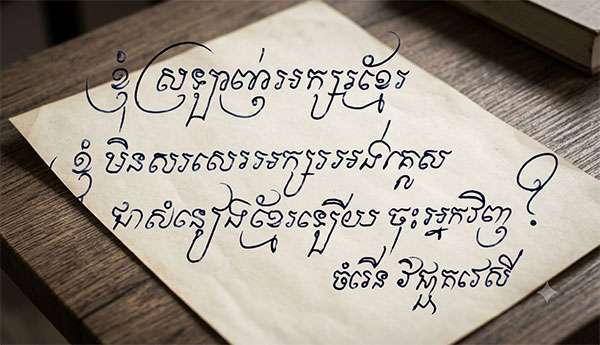 ខ្ញុំ ស្រឡាញ់អក្សរខ្មែរ
ខ្ញុំ មិនសរសេរអក្សរអង់គ្លេស
ជាសំនៀងខ្មែរឡើយ ចុះអ្នកវិញ ?
ចំរើន វិជ្ជាគវេសី